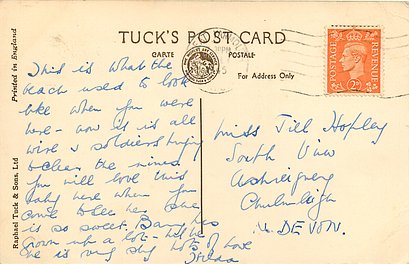 TUCK'S POST CARD
CARTE POSTALE
For Address Only
POSTAGE
REVENUE
Printed in England
Raphael Tuck & Sons, Ltd
This is what the
beach used to look
like when you were
here - now it is all
wire & soldiers trying
to clear the mines
You will love this
baby here when you
come to see her she
is so sweet. Barry has
grown up a lot - but
he is very shy Lots of love
Hilda
Miss Jill Hopley
South View
Ashreigney
Chulmleigh
N. DEVON.